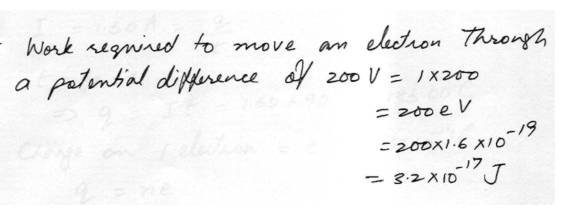 Work required to move an electron Through
a potential difference of 200 V = 1×200
= 200 eV
= 200×1.6 ×10⁻¹⁹
= 3.2×10⁻¹⁷ J